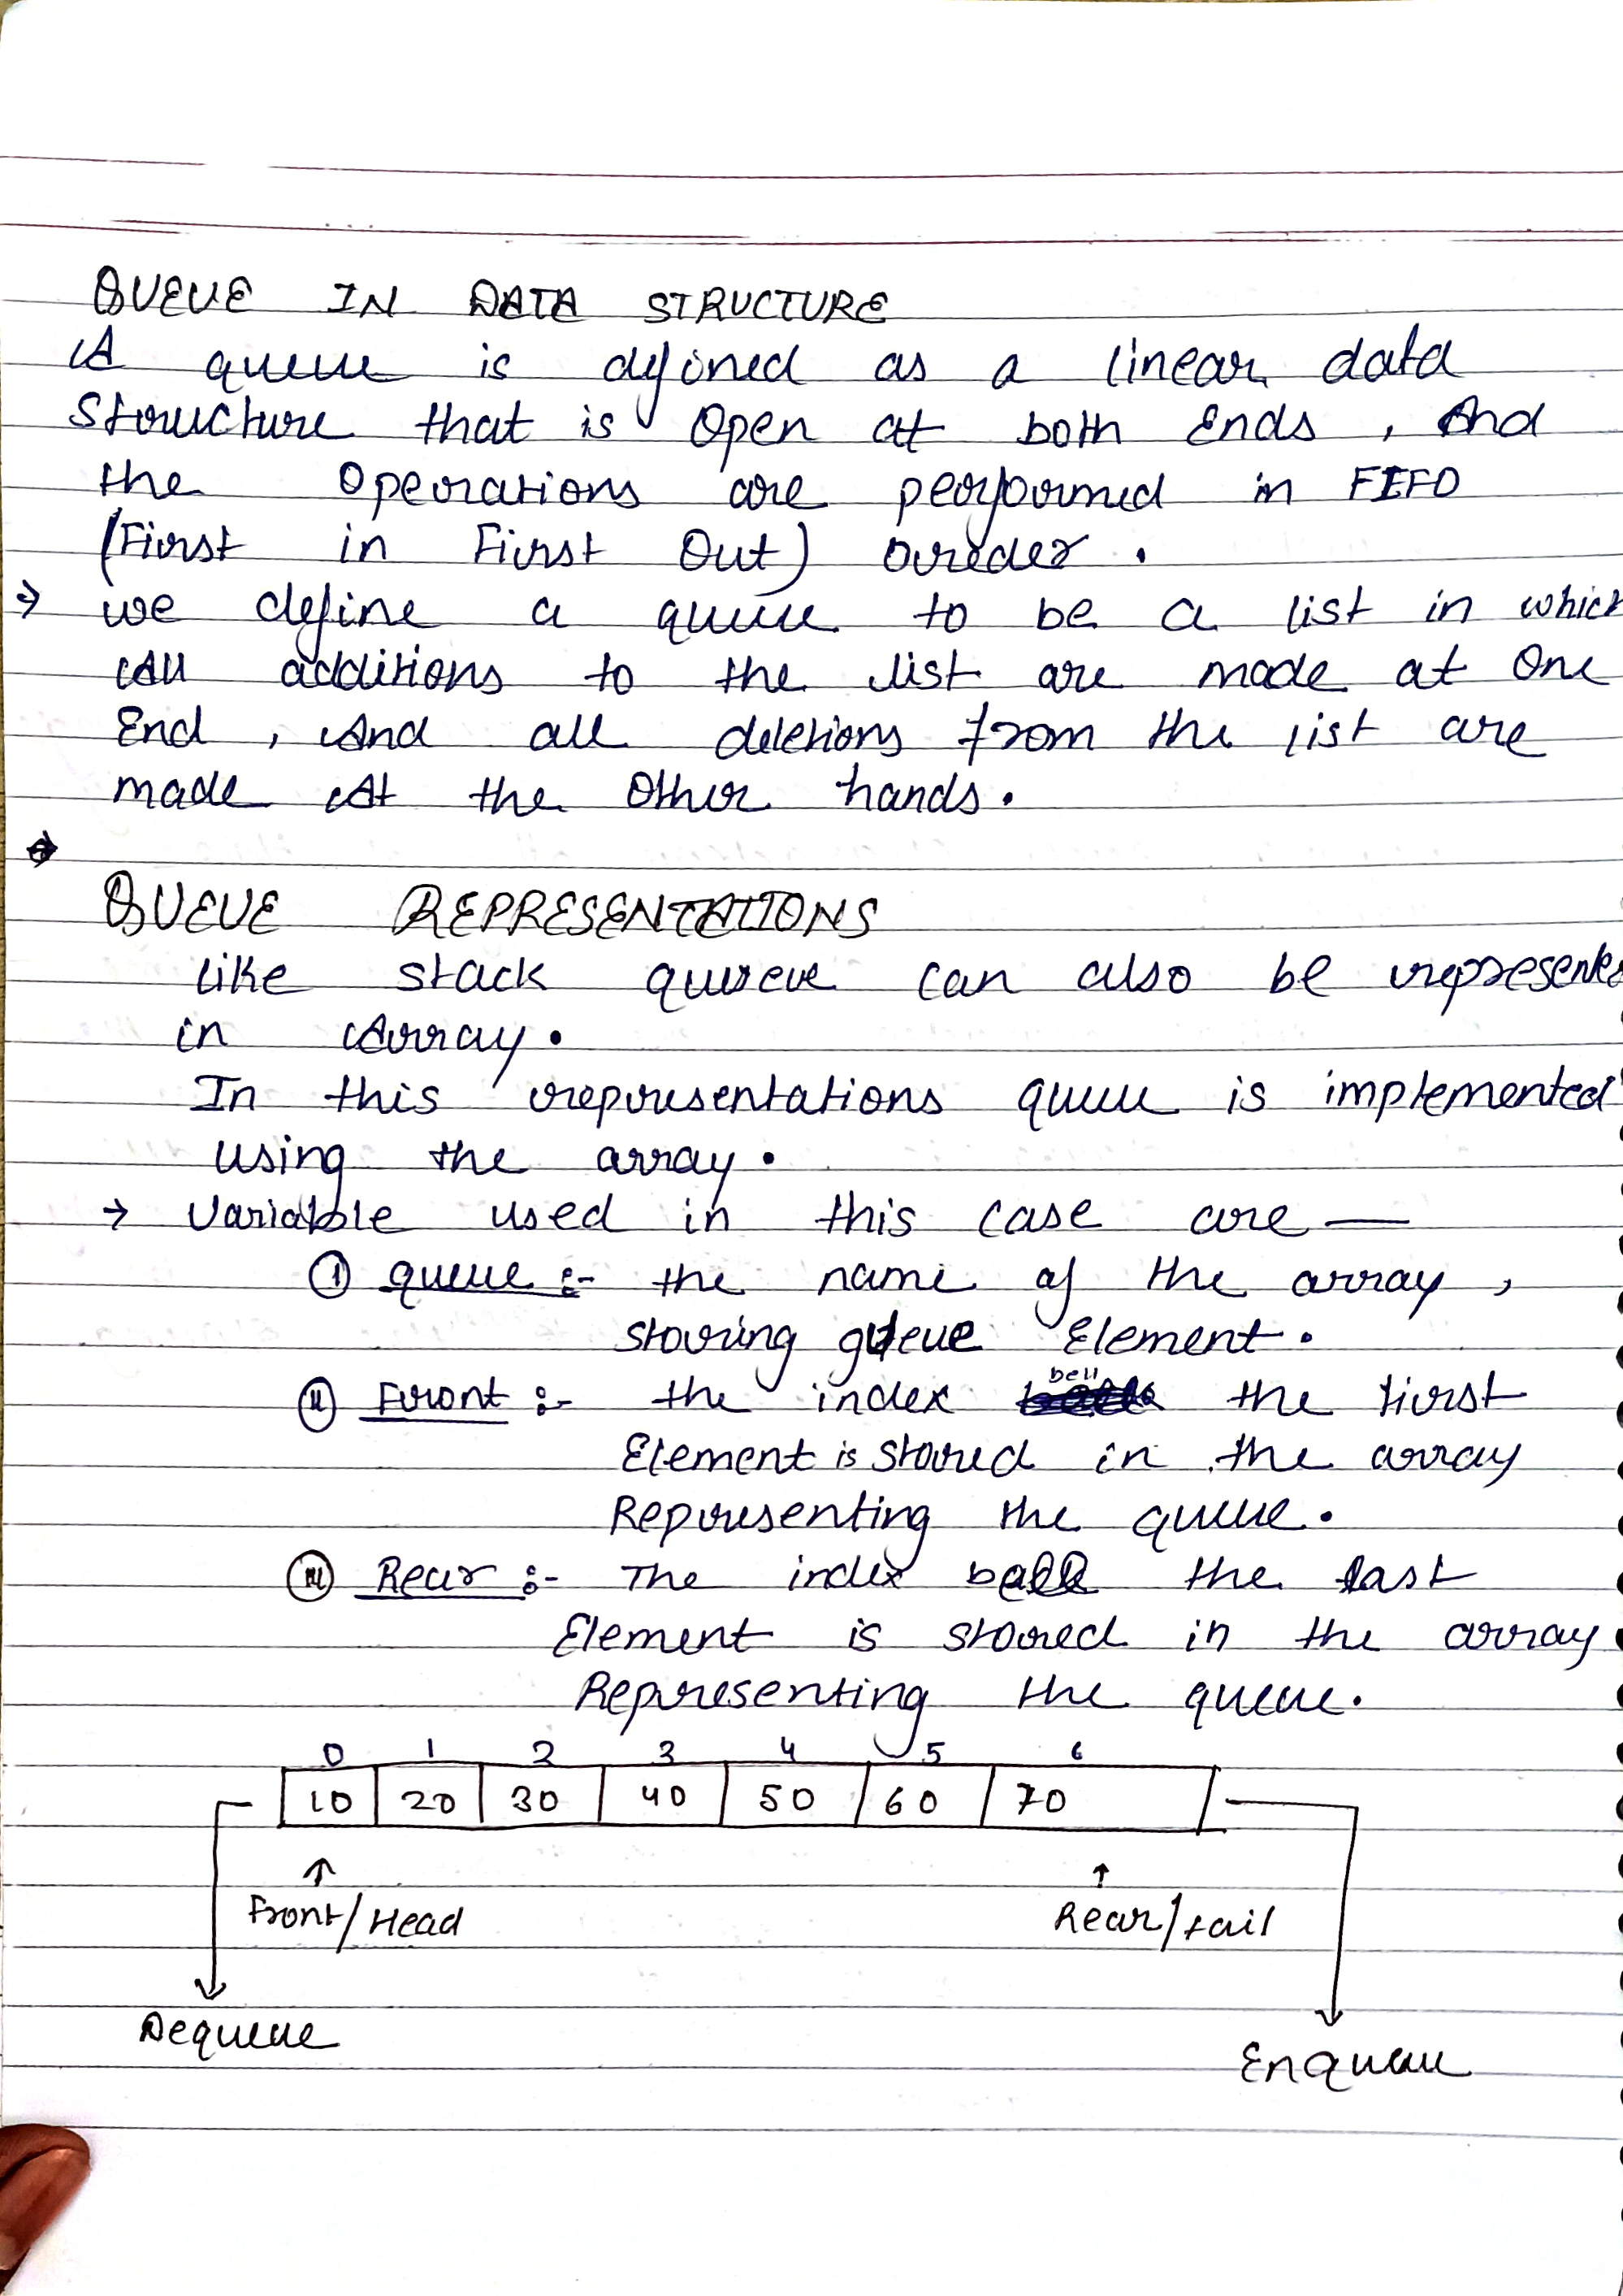 QUEUE IN DATA STRUCTURE
A queue is defined as a linear data
Structure that is Open at both Ends, And
the Operations are performed in FIFO
(First in First Out) oreder.
→ we define a queue to be a list in which
All additions to the list are made at One
End, And all deletions from the list are
made At the Other hands.
QUEUE REPRESENTATIONS
like stack queue can also be represente
in Array.
In this representations queue is implemented
using the array.
→ Variable used in this case are —
(I) queue :- the name of the array,
storing queue Element.
(II) Front :- the index bell the first
Element is stored in the array
Representing the queue.
(III) Rear :- The index bell the last
Element is stored in the array
Representing the queue.
0 1 2 3 4 5 6
10 20 30 40 50 60 70
↑ ↑
Front/Head Rear/tail
Dequeue
Enqueue